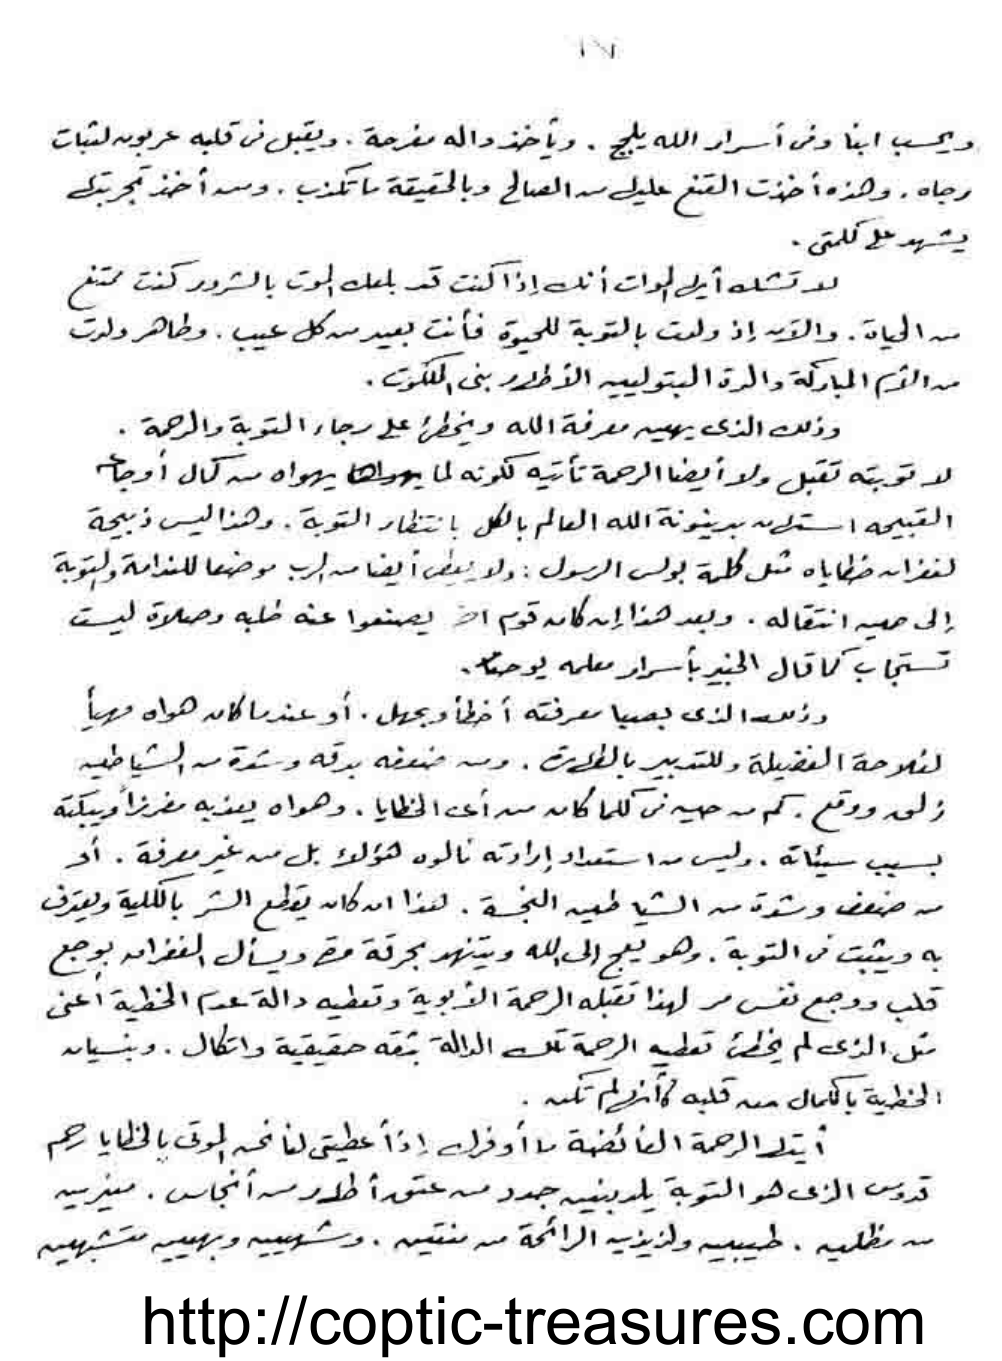 ٦٧
ويحسب ابنا وفى أسرار الله يلج . ويأخذ داله مفرحة . ويقبل فى قلبه عربون لثبات
رجاه . وهذه أخذت القنع عليك من الصالح وبالحقيقة ما تكذب . ومن أخذ تجربتك
يشهد على كلمتى .
لا تشك أيها الموات أنك إذا كنت قد بلعك الموت بالشرور كنت ممتنع
من الحياة . والآن إذ ولدت بالتوبة للحيوة فأنت بعيد من كل عيب . وطاهر ولدت
من الأم المباركة والدة البتوليين الأطهار بنى الملكوت .
وذلك الذى يهين معرفة الله ويخطئ على رجاء التوبة والرحمة .
لا توبته تقبل ولا أيضا الرحمة تأتيه لكونه لما يهواه من كمال أوجاعه
القبيحه استهان بدينونة الله العالم بالكل بانتظار التوبة . وهذا ليس ذبيحة
لغفران خطاياه مثل كلمة بولس الرسول : ولا يعطى أيضا من الرب موضعا للندامة والتوبة
إلى حين انتقاله . وبعد هذا إن كان قوم يصنعوا عنه طلبه وصلاة ليست
تستجاب كما قال الخبير بأسرار معلمه يوحنا .
وذلك الذى بصبا معرفته أخطأ وبجهل . أو عندما كان هواه مهيأ
لفلاحة الفضيلة وللتدبير بالطهارت . ومن ضعفه بدقه وشدة من الشياطين
زلق ووقع . كم من حين فى كلما كان من أى الخطايا . وهواه يعذبه مفرزاً ويبكته
بسبب سيئاته . وليس من استعداد إرادته نالوه هؤلاء بل من غير معرفة . أو
من ضعف وشدة من الشياطين النجسة . لهذا ان كان يقطع الشر بالكلية ويعترف
به ويثبت فى التوبة . وهو يعج إلى الله ويتنهد بحرقة ويسأل الغفران بوجع
قلب ووجع نفس مر لهذا تقبله الرحمة الأبوية وتعطيه دالة عدم الخطية أعنى
مثل الذى لم يخطئ تعطيه الرحمة تلك الدالة بثقه حقيقية واتكال . وبنسيان
الخطية بالكمال من قلبه كأنها لم تكن .
أيتها الرحمة الفائضة ما أوفرك إذا أعطيتى لنا نحن الموتى بالخطايا رحم
قدوس الذى هو التوبة يلد بنين جدد من عتق أطهار من أنجاس . منيرين
من مظلمين . طيبين ولذيذين الرائحة من منتنين . وشهيين وبهيين متشبهين
http://coptic-treasures.com